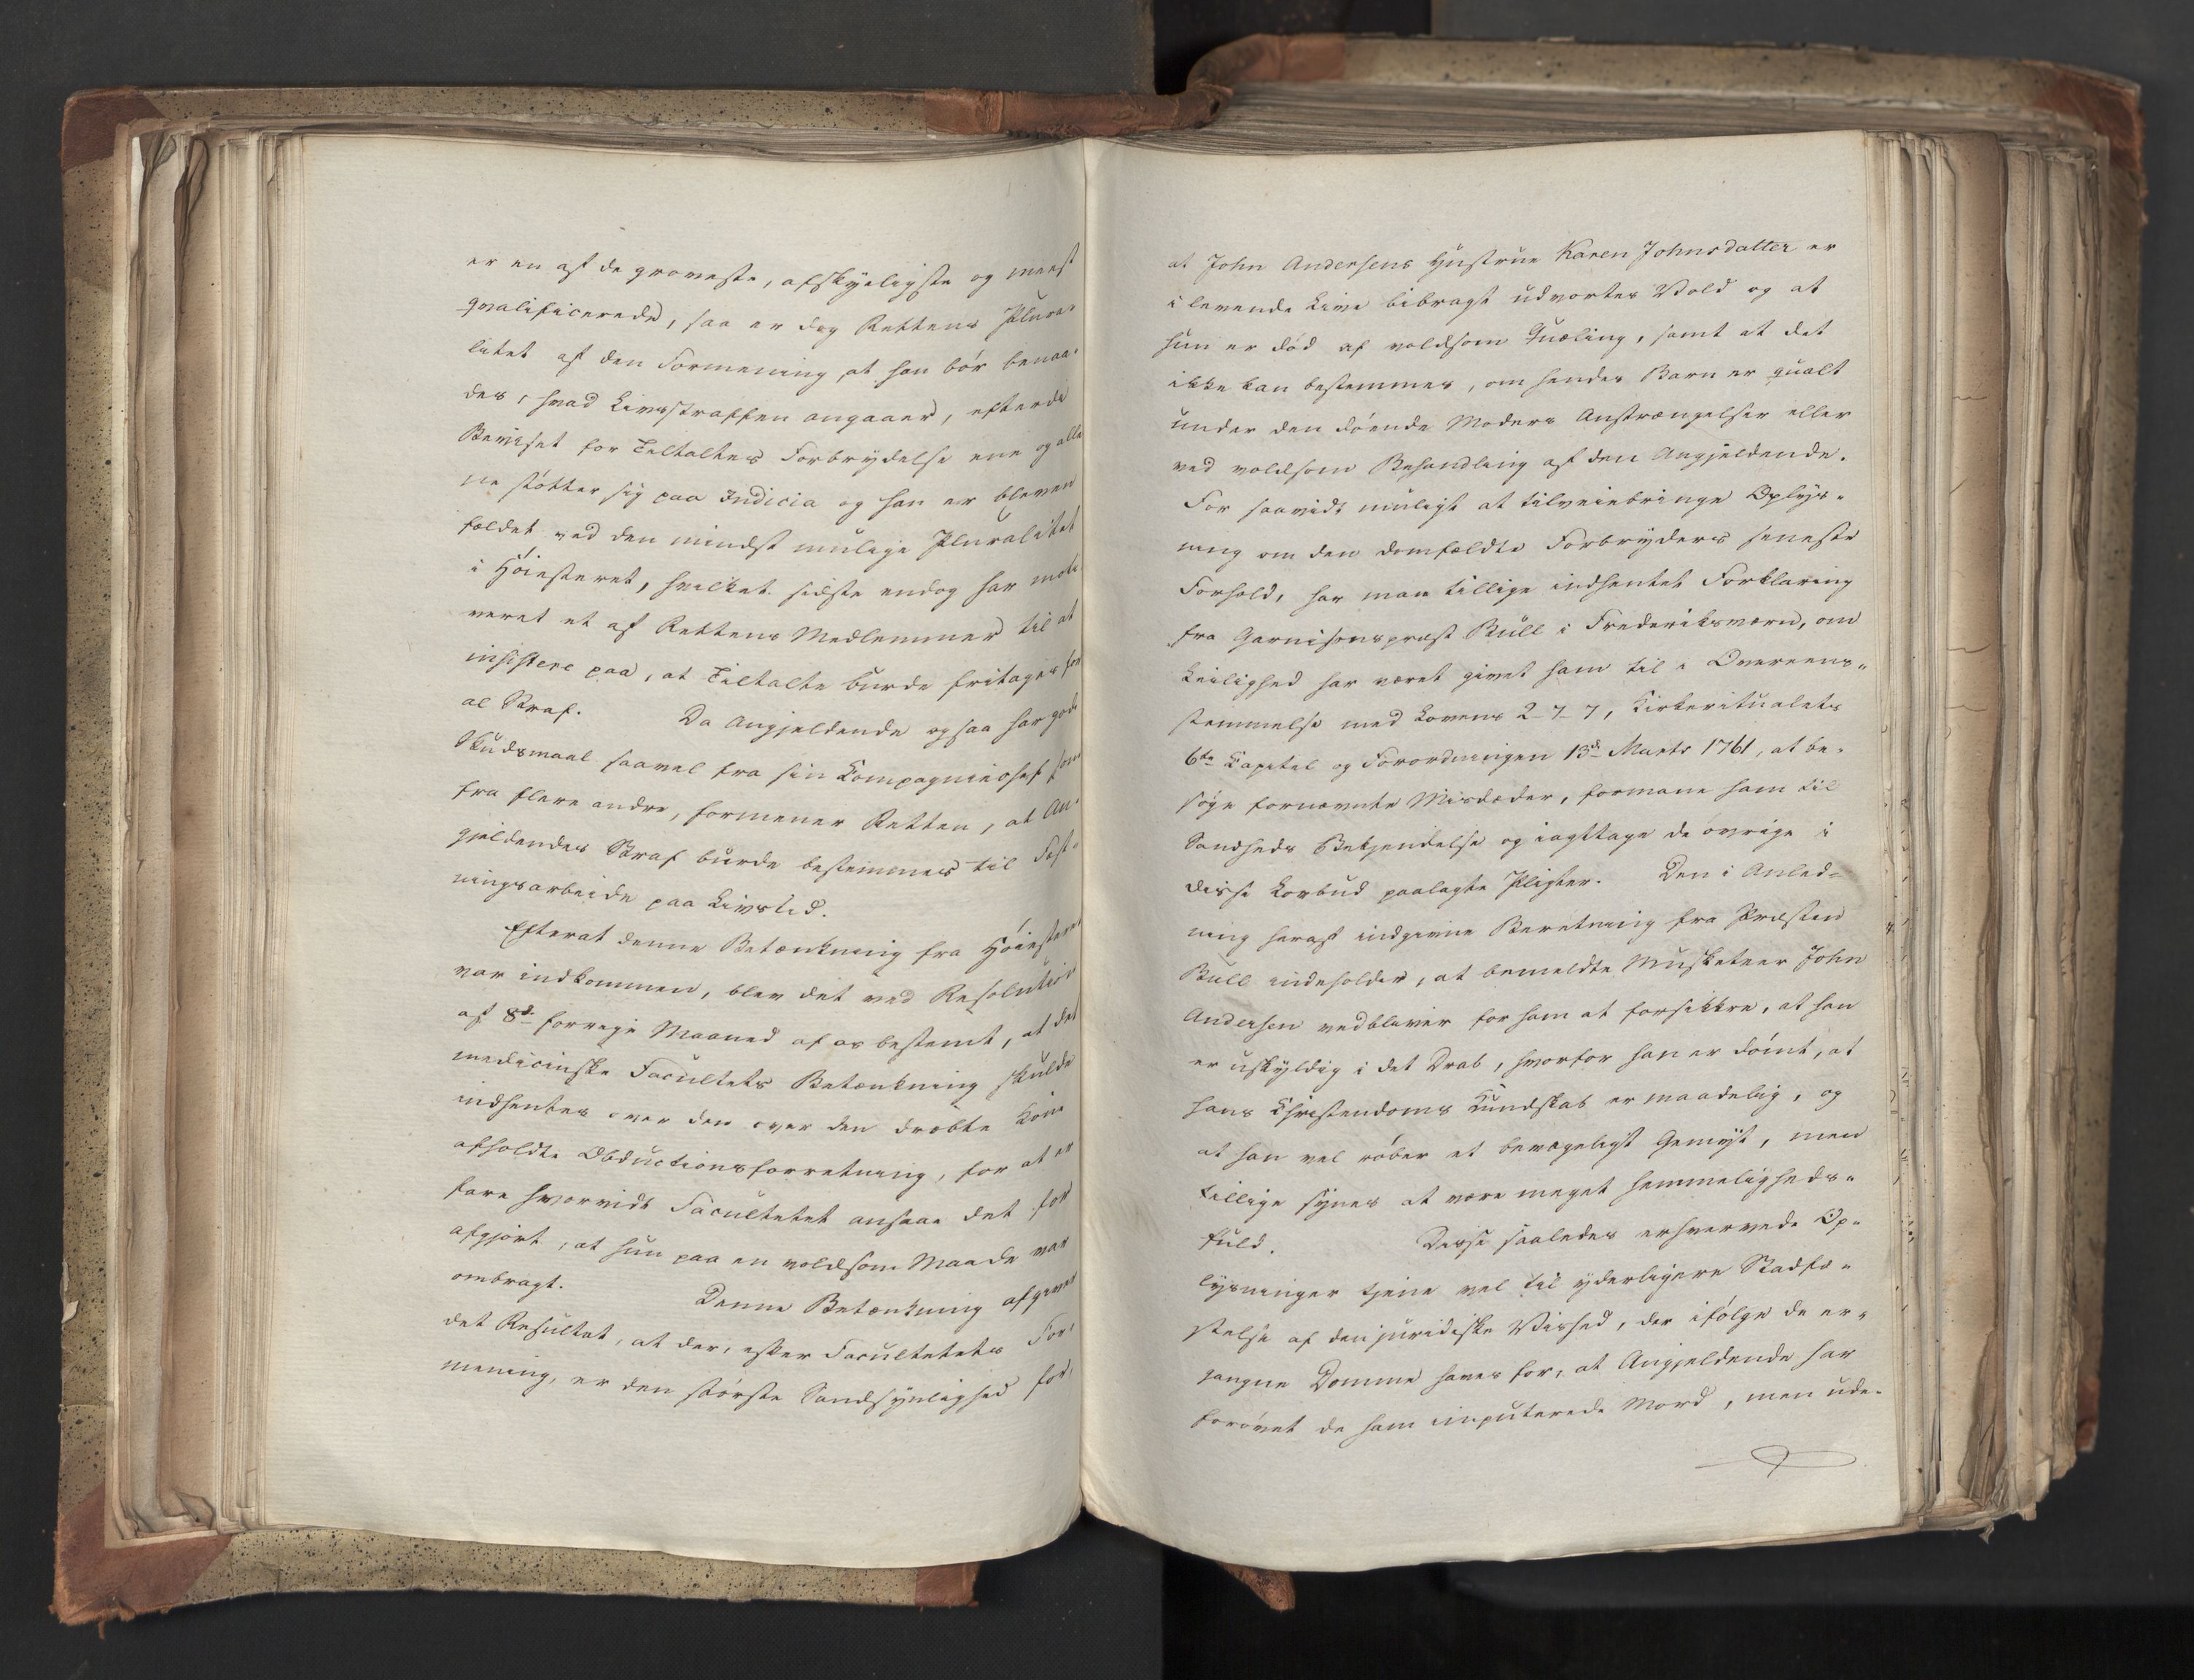 er en af de groveste, afskyeligste og meest
qvalificerede, saa er dog Rettens Plura-
litet af den Formening, at han bør benaa-
des, hvad Livsstraffen angaaer, efterdi
Beviset for Tiltaltes Forbrydelse ene og alle
ne støtter sig paa Indicia og han er bleven
fældet ved den mindst mulige Pluralitet
i Høiesteret, hvilket sidste endog har moti
veret et af Rettens Medlemmer til at
insistere paa, at Tiltalte burde fritages for
al Straf. Da Angjeldende ogsaa har gode
Skudsmaal saavel fra sin Compagniechef som
fra flere andre, formener Retten, at An-
gjeldendes Straf burde bestemmes til Fæst-
ningsarbeide paa Livstid.
Efterat denne Betænkning fra Høiesteret
var indkommen, blev det ved Resolution
af 8de forrige Maaned af os bestemt, at det
medicinske Facultets Betænkning skulde
indhentes over den over den dræbte Kone
afholdte Obductionsforretning, for at er
fare hvorvidt Facultetet ansaae det for
afgjort, at hun paa en voldsom Maade var
ombragt. Denne Betænkning afgiver
det Resultat, at der, efter Facultetets For-
mening, er den største Sandsynlighed for,
at John Andersens Hustrue Karen Johnsdatter er
i levende Live bibragt udvortes Vold og at
hun er død af voldsom Quæling, samt at det
ikke kan bestemmes, om hendes Barn er qualt
under den døende Moders Anstrængelser eller
ved voldsom Behandling af den Angjeldende.
For saavidt muligt at tilveiebringe Oplys-
ning om den domfældte Forbryders seneste
Forhold, har man tillige indhentet Forklaring
fra Garnisonspræst Bull i Frederiksværn, om
Leilighed har været givet ham til i Overeens-
stemmelse med Lovens 2-7-7, Kirkeritualets
6te Capitel og Forordningen 13de Marts 1761, at be-
søge fornævnte Misdæder, formane ham til
Sandheds Bekjendelse og iagttage de øvrige i
disse Lovbud paalagte Pligter. Den i Anled-
ning heraf indgivne Beretning fra Præsten
Bull indeholder, at bemeldte Musketeer John
Andersen vedbliver for ham at forsikkre, at han
er uskyldig i det Drab, hvorfor han er dømt, at
hans Christendoms Kundskab er maadelig, og
at han vel røber et bevægeligt Gemyt, men
tillige synes at være meget hemmeligheds-
fuld. Disse saaledes erhvervede Op-
lysninger tjene vel til yderligere Stadfæ-
stelse af den juridiske Vished, der ifølge de er-
gangne Domme haves for, at Angjeldende har
forøvet de ham imputerede Mord, men ude-